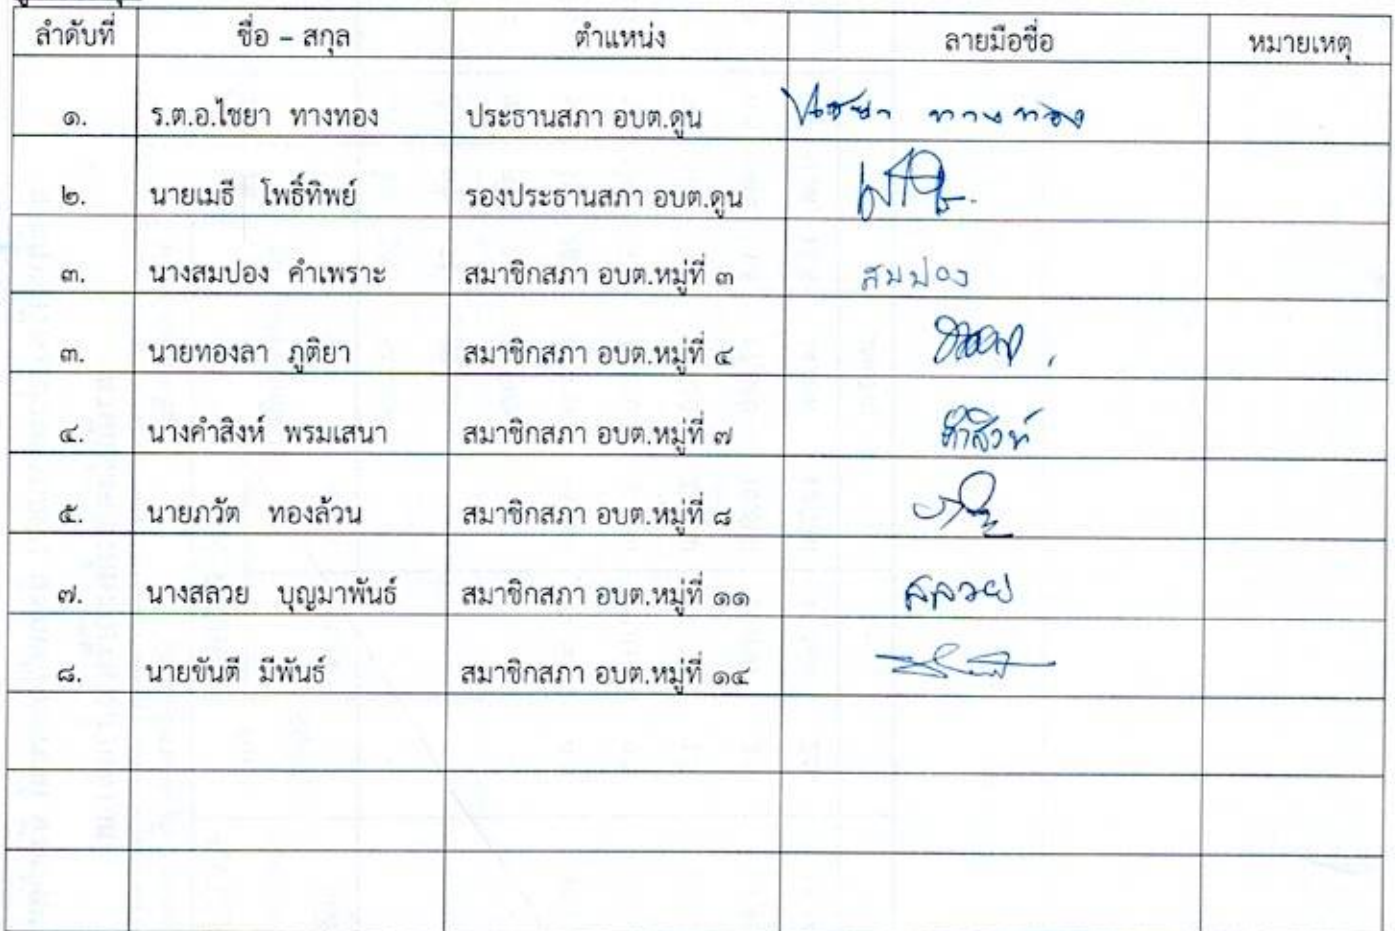 ลำดับที่ ชื่อ – สกุล ตำแหน่ง ลายมือชื่อ หมายเหตุ
๑. ร.ต.อ.ไชยา ทางทอง ประธานสภา อบต.ดูน ไชยา ทางทอง
๒. นายเมธี โพธิ์ทิพย์ รองประธานสภา อบต.ดูน
๓. นางสมปอง คำเพราะ สมาชิกสภา อบต.หมู่ที่ ๓ สมปอง
๓. นายทองลา ภูติยา สมาชิกสภา อบต.หมู่ที่ ๕
๔. นางคำสิงห์ พรมเสนา สมาชิกสภา อบต.หมู่ที่ ๗ คำสิงห์
๕. นายภวัต ทองล้วน สมาชิกสภา อบต.หมู่ที่ ๘
๗. นางสลวย บุญมาพันธ์ สมาชิกสภา อบต.หมู่ที่ ๑๑ สลวย
๘. นายขันตี มีพันธ์ สมาชิกสภา อบต.หมู่ที่ ๑๔